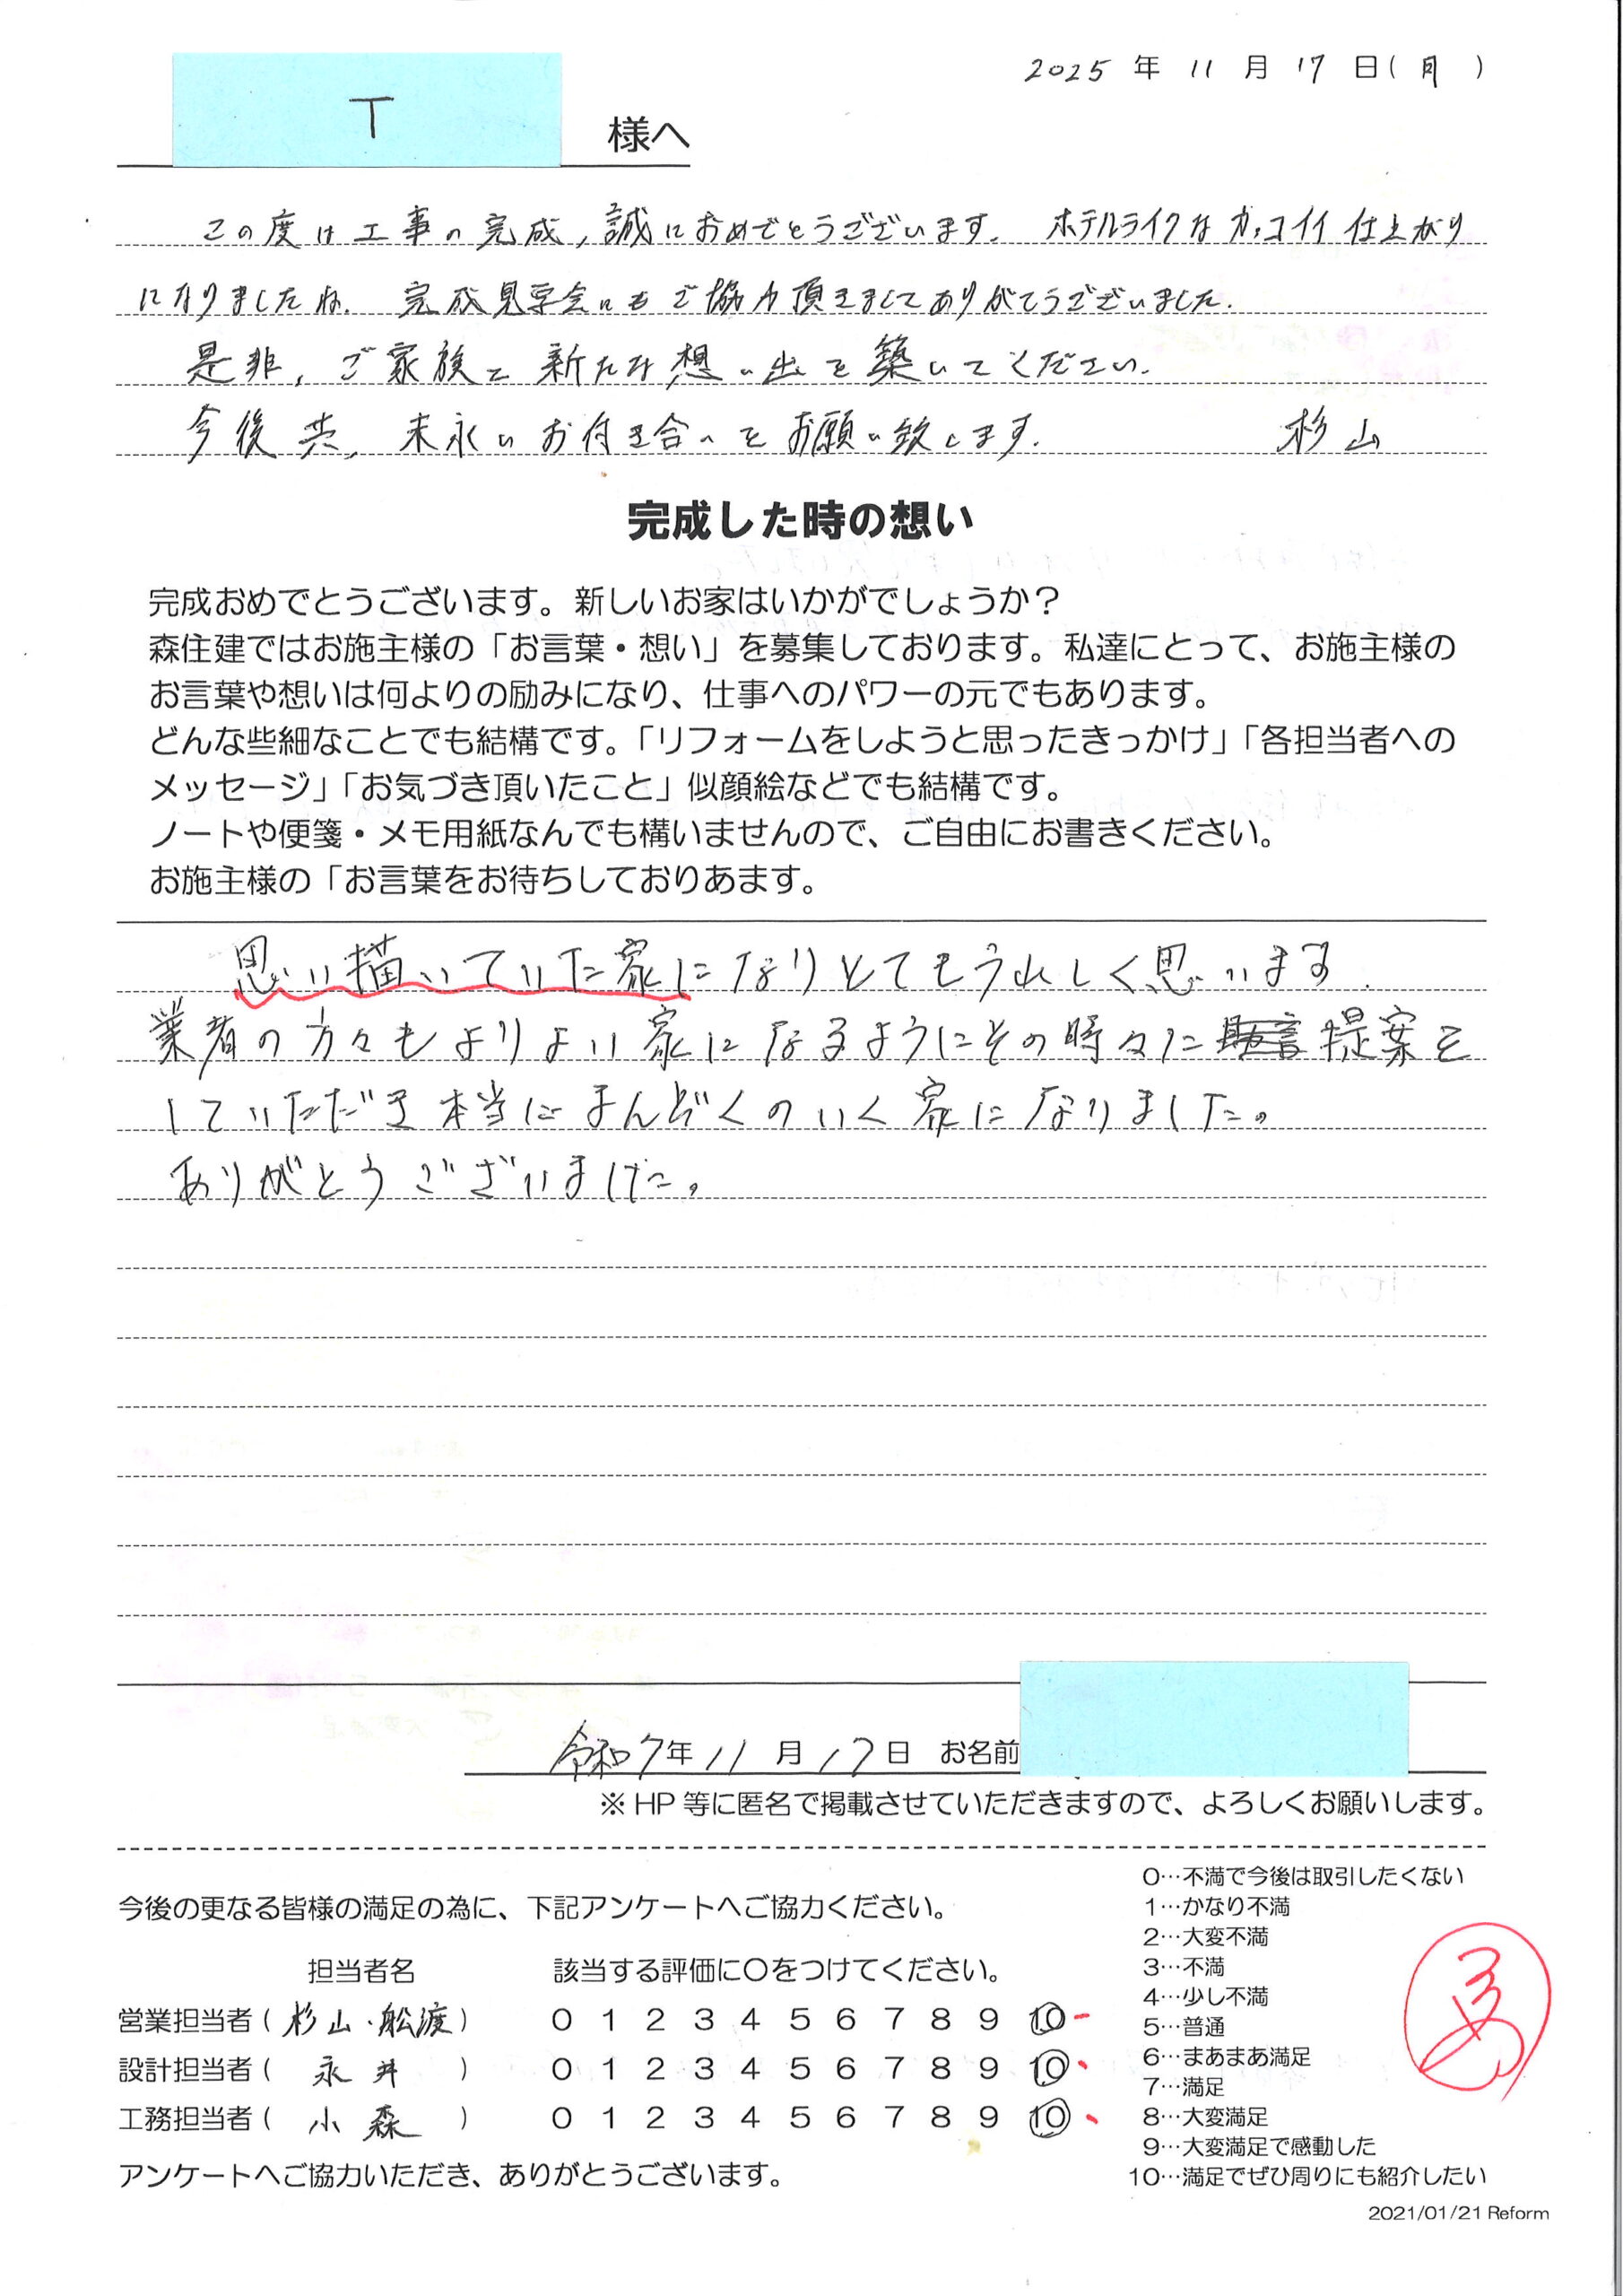 2025 年 11 月 17 日(月)
T 様へ
この度は工事の完成,誠におめでとうございます. ホテルライクなカッコイイ仕上がり
になりましたね. 完成見学会にもご協力頂きましてありがとうございました.
是非,ご家族と新たな想い出を築いてください.
今後共,末永いお付き合いをお願い致します. 杉山
完成した時の想い
完成おめでとうございます。新しいお家はいかがでしょうか？
森住建ではお施主様の「お言葉・想い」を募集しております。私達にとって、お施主様の
お言葉や想いは何よりの励みになり、仕事へのパワーの元でもあります。
どんな些細なことでも結構です。「リフォームをしようと思ったきっかけ」「各担当者への
メッセージ」「お気づき頂いたこと」似顔絵などでも結構です。
ノートや便箋・メモ用紙なんでも構いませんので、ご自由にお書きください。
お施主様の「お言葉をお待ちしておりあます。
思い描いていた家になりとてもうれしく思います.
業者の方々もよりよい家になるようにその時々に提案を
していただき本当にまんぞくのいく家になりました。
ありがとうございました。
令和7年 11 月 17日 お名前
※HP 等に匿名で掲載させていただきますので、よろしくお願いします。
今後の更なる皆様の満足の為に、下記アンケートへご協力ください。
担当者名 該当する評価に〇をつけてください。
営業担当者(杉山・舩渡) 0 1 2 3 4 5 6 7 8 9 10
設計担当者(永井) 0 1 2 3 4 5 6 7 8 9 10
工務担当者(小森) 0 1 2 3 4 5 6 7 8 9 10
アンケートへご協力いただき、ありがとうございます。
0…不満で今後は取引したくない
1…かなり不満
2…大変不満
3…不満
4…少し不満
5…普通
6…まあまあ満足
7…満足
8…大変満足
9…大変満足で感動した
10…満足でぜひ周りにも紹介したい
2021/01/21 Reform